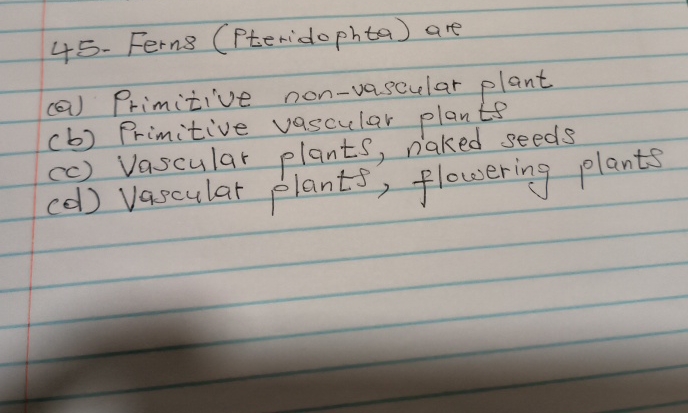 45- Ferns (Pteridophta) are
(a) Primitive non-vascular plant
(b) Primitive vascular plants
(c) Vascular plants, naked seeds
(d) Vascular plants, flowering plants